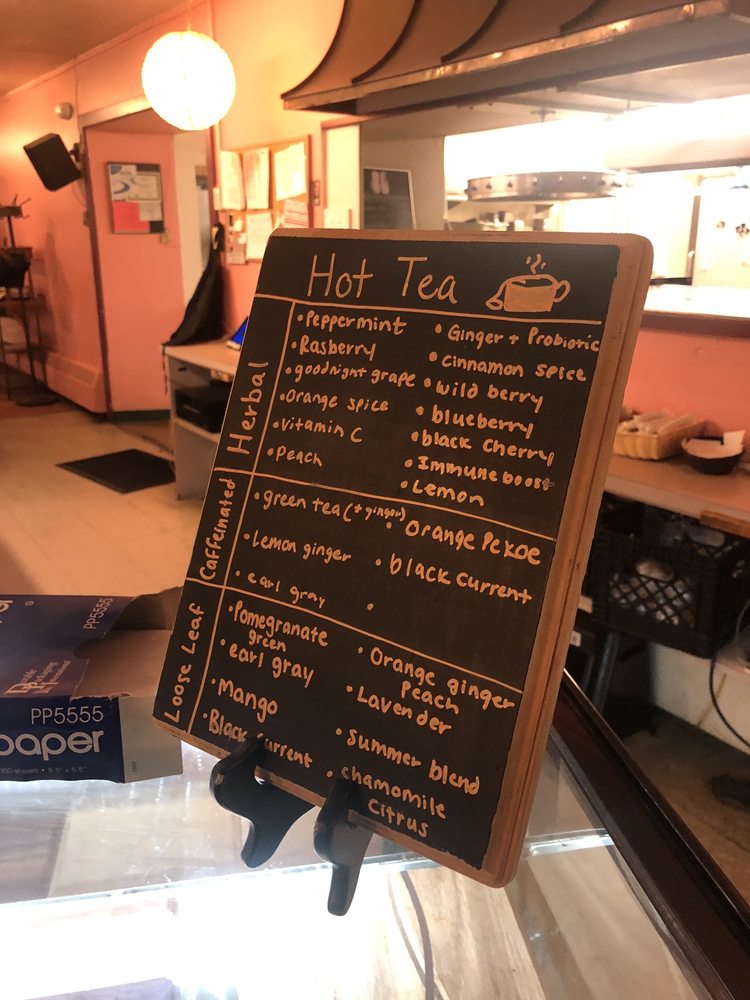 Hot Tea
Herbal
• Peppermint
• Rasberry
• goodnight grape
• Orange spice
• Vitamin C
• Peach
• Ginger + Probiotic
• Cinnamon spice
• wild berry
• blueberry
• black Cherry
• Immune boost
• Lemon
Caffeinated
• green tea (+ ginger)
• Lemon ginger
• earl gray
• Orange Pekoe
• black current
•
Loose Leaf
• Pomegranate
green
• earl gray
• Mango
• Black current
• Orange ginger
Peach
• Lavender
• Summer blend
• chamomile
Citrus
PP5555
PP5555
paper